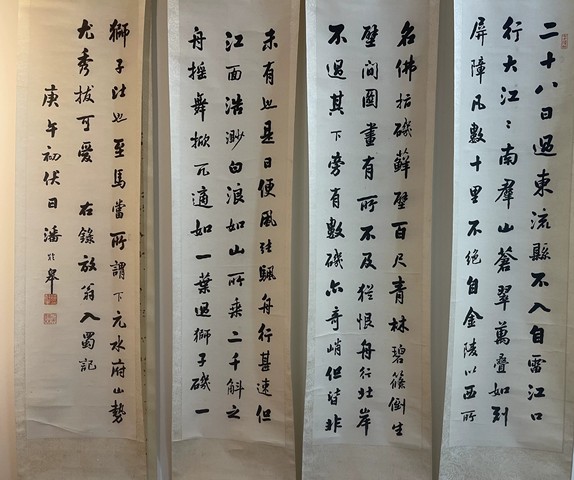 二十八日過東流縣不入自雷江口
行大江〻南羣山蒼翠萬疊如列
屏障凡數十里不絕自金陵以西所
名佛指磯蘚壁百尺青林碧篠倒生
壁間圖畫有所不及猶恨舟行北岸
不過其下旁有數磯亦奇峭但皆非
未有也是日便風張颿舟行甚速但
江面浩渺白浪如山所乘二千斛之
舟搖舞掀兀適如一葉過獅子磯一
獅子比也至馬當所謂下元水府山勢
尤秀拔可愛 右錄放翁入蜀記
庚午初伏日潘齡皋